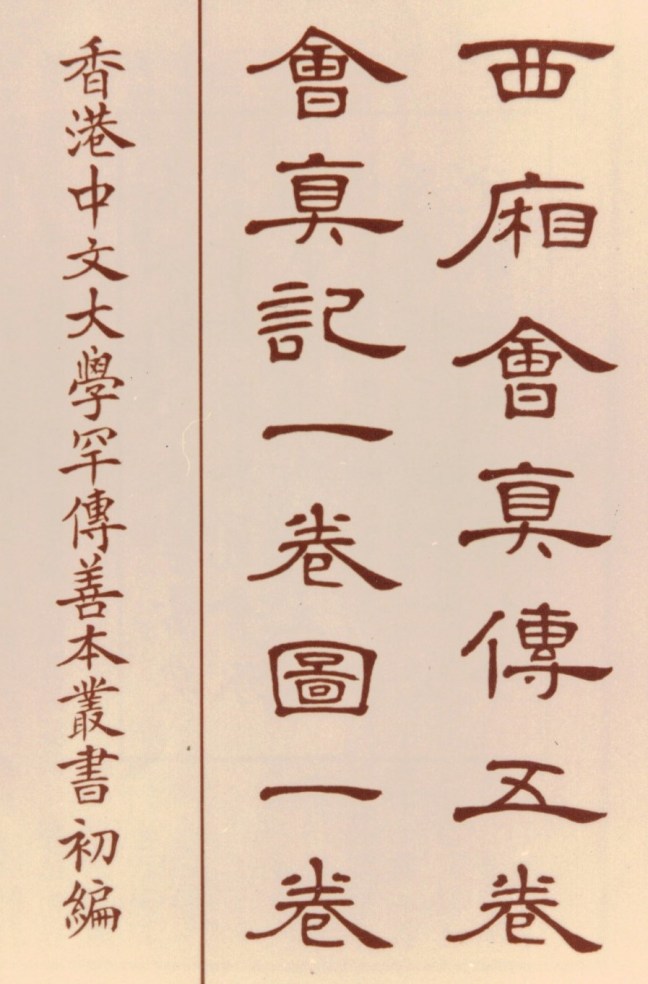 西廂會真傳五卷
會真記一卷圖一卷
香港中文大學罕傳善本叢書初編